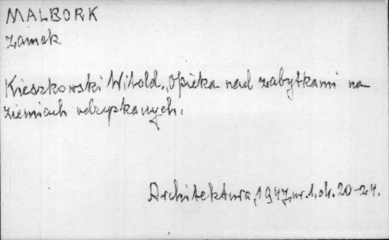 MALBORK
zamek
Kieszkowski Witold, Opieka nad zabytkami na
ziemiach odzyskanych.
Architektura, 1947, nr. 1. st. 20-24.